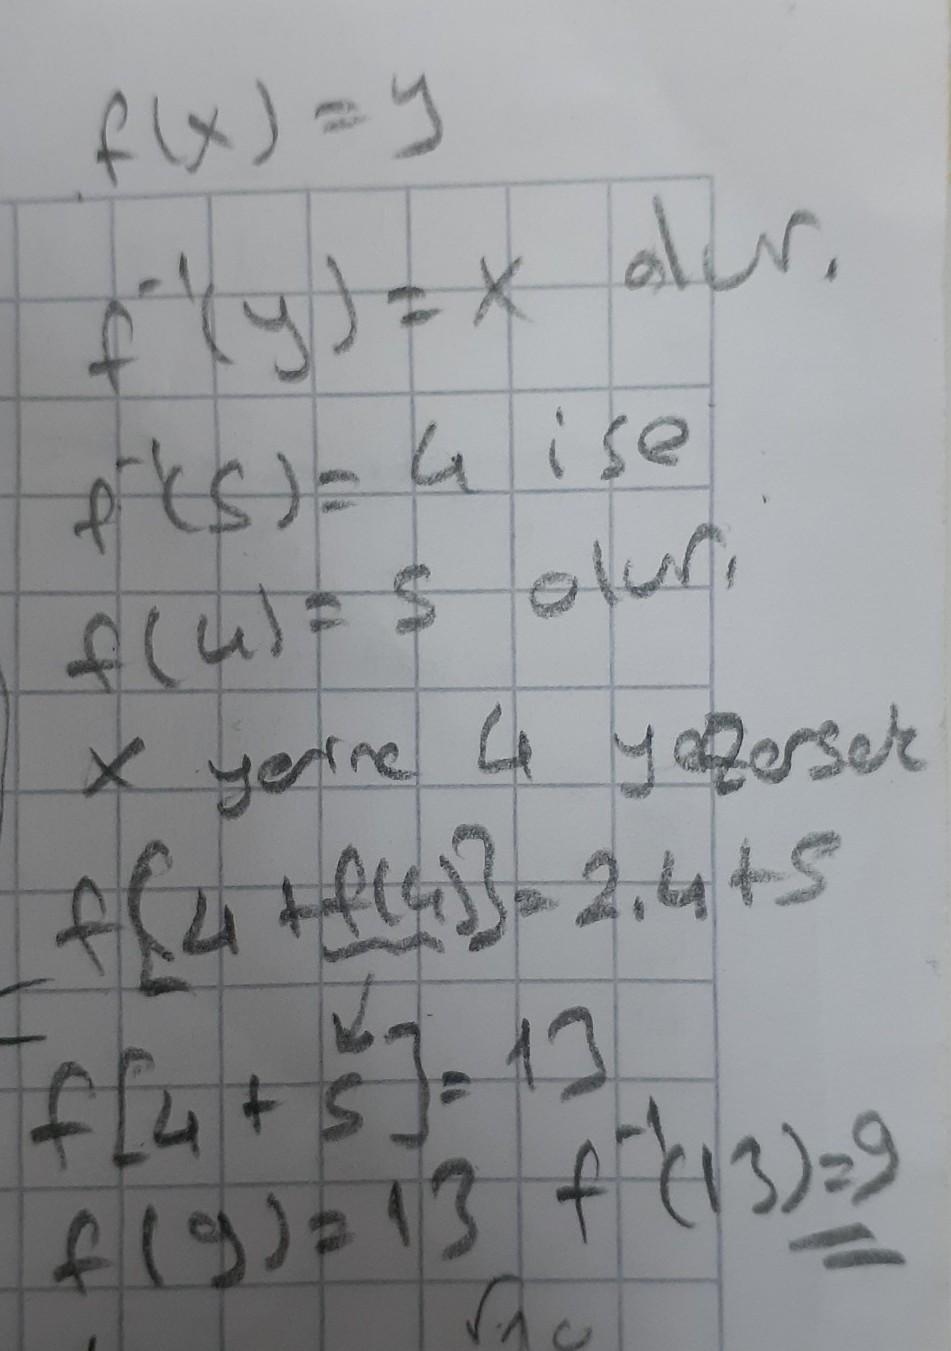 f(x) = y
f⁻¹(y) = x olur.
f⁻¹(5) = 4 ise
f(4) = 5 olur.
x yerine 4 yazarsak
f[4 + f(4)] = 2.4+5
f[4 + 5] = 13
f(9) = 13 f⁻¹(13) = 9